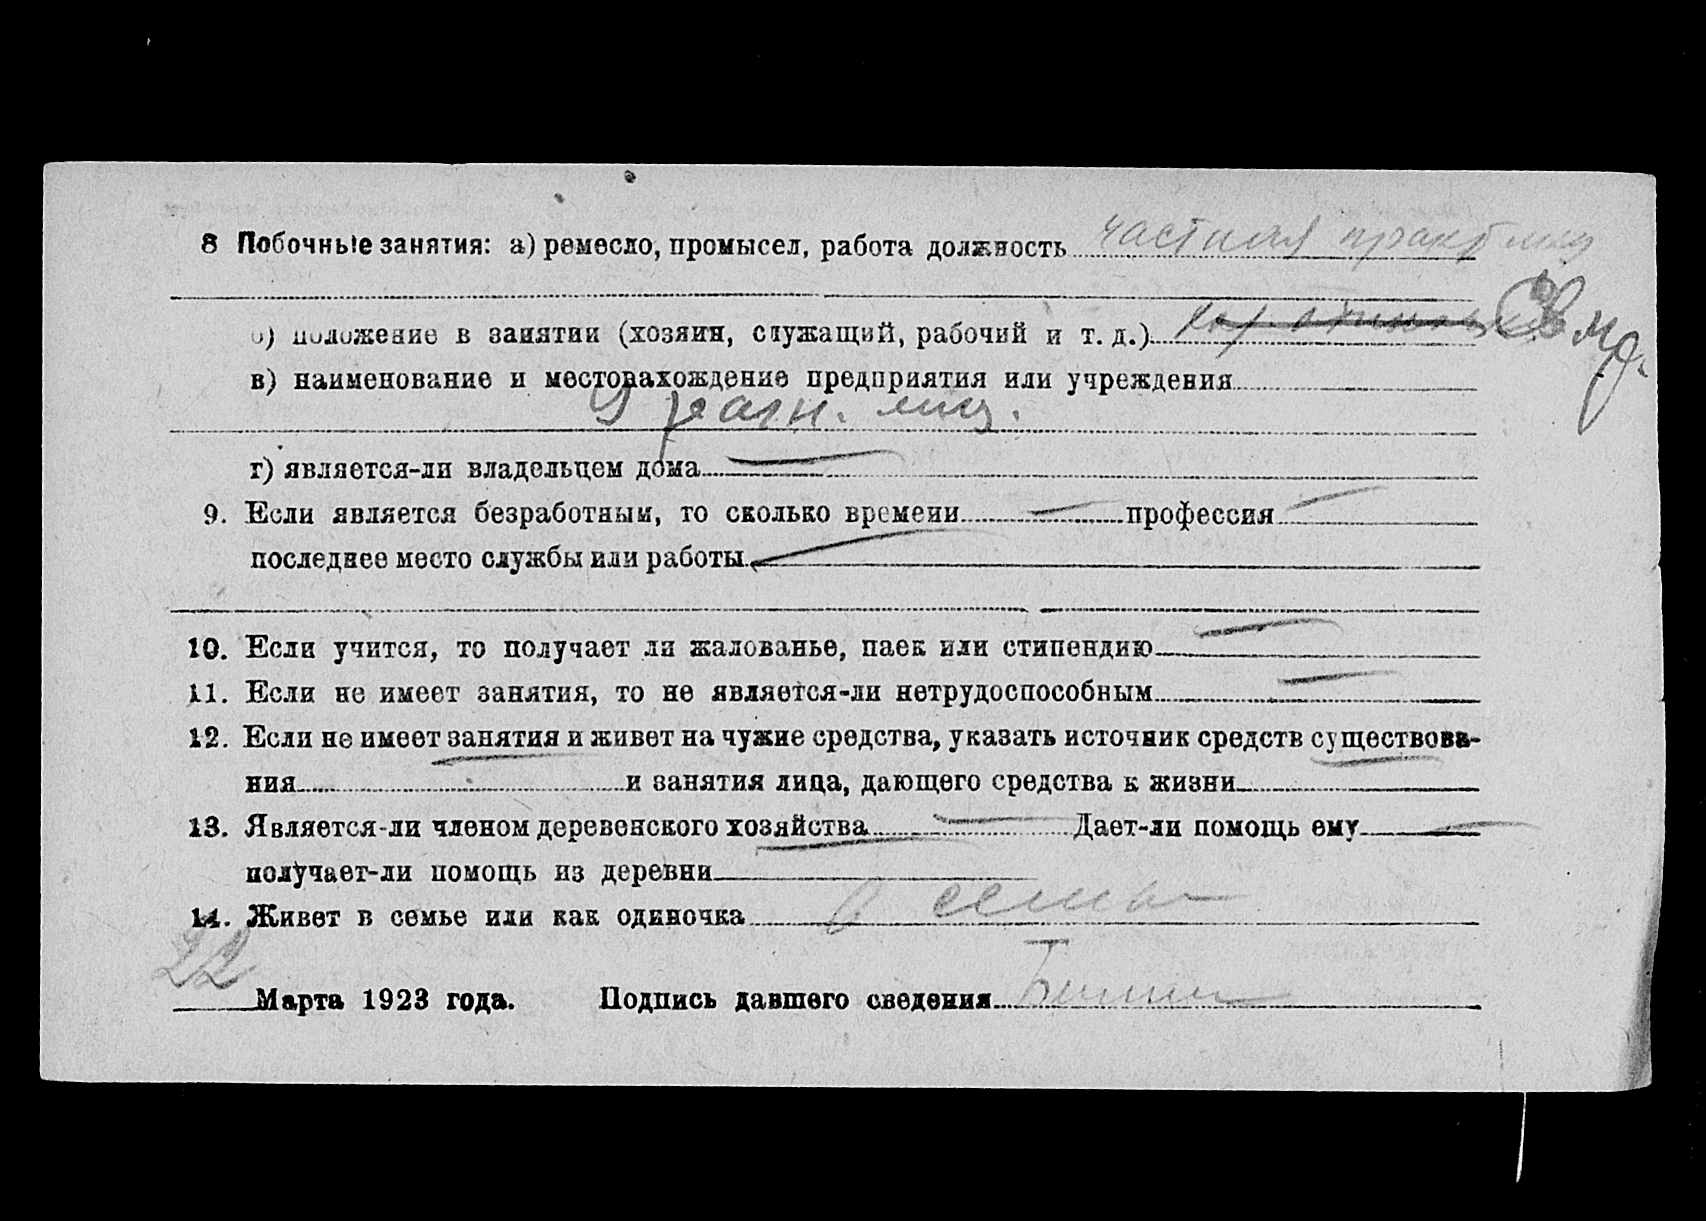 8 Побочные занятия: а) ремесло, промысел, работа должность частная практика
б) положение в занятии (хозяин, служащий, рабочий и т. д.)
в) наименование и местонахождение предприятия или учреждения
У разн. лиц.
г) является-ли владельцем дома —
9. Если является безработным, то сколько времени — профессия —
последнее место службы или работы —
10. Если учится, то получает ли жалованье, паек или стипендию —
11. Если не имеет занятия, то не является-ли нетрудоспособным —
12. Если не имеет занятия и живет на чужие средства, указать источник средств существова-
ния — и занятия лица, дающего средства к жизни —
13. Является-ли членом деревенского хозяйства — Дает-ли помощь ему —
получает-ли помощь из деревни —
14. Живет в семье или как одиночка в семье
22 Марта 1923 года. Подпись давшего сведения